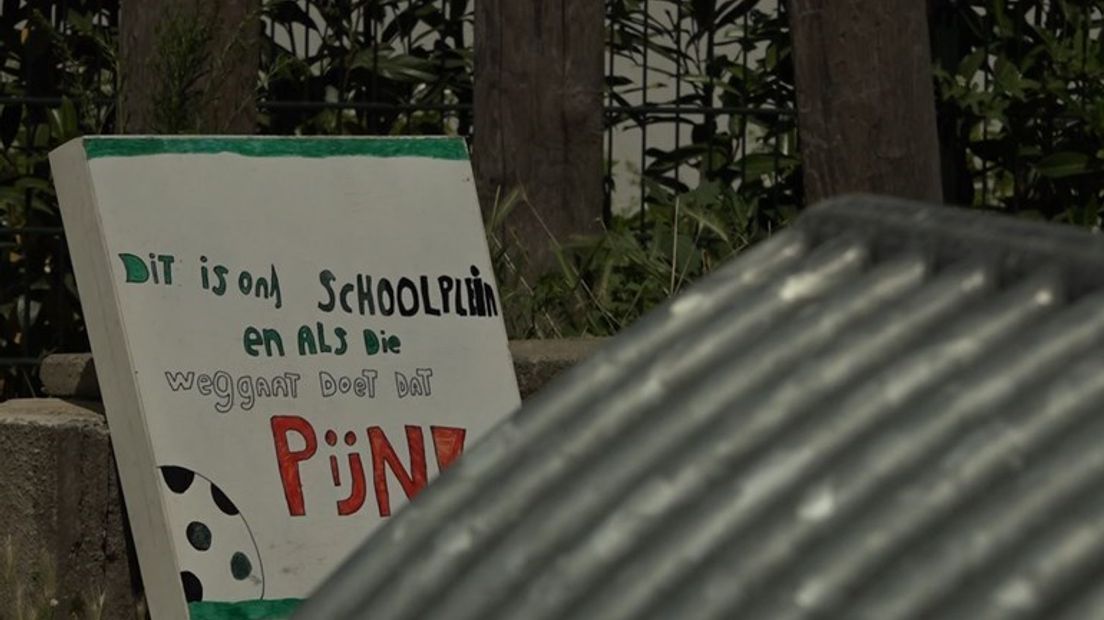 DiT is ons ScHOOLPLEiN
en ALS Die
weggaat DoeT DAT
PijN!